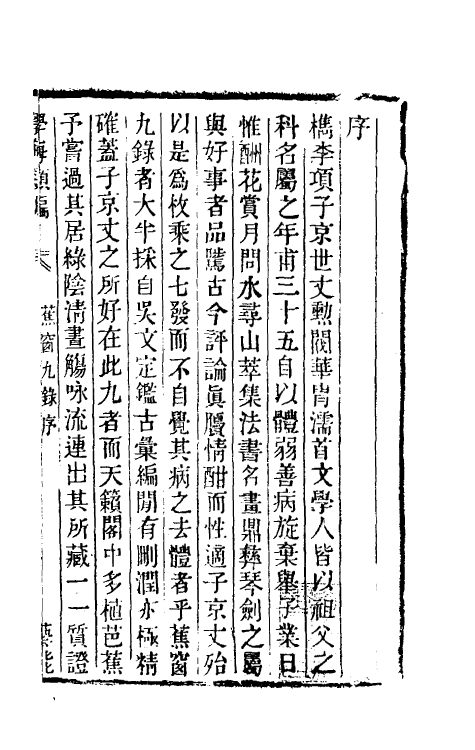 序
檇李項子京世丈勲閥華胄濡首文學人皆以祖父之
科名屬之年甫三十五自以體弱善病旋棄舉子業日
惟酬花賞月問水尋山萃集法書名畫鼎彝琴劍之屬
與好事者品騭古今評論眞贗情酣而性適子京丈殆
以是爲枚乘之七發而不自覺其病之去體者乎蕉窗
九錄者大半採自吳文定鑑古彙編閒有刪潤亦極精
確蓋子京丈之所好在此九者而天籟閣中多植芭蕉
予嘗過其居綠陰清晝觴咏流連出其所藏一一質證
學海類編
蕉窗九錄序
藝能